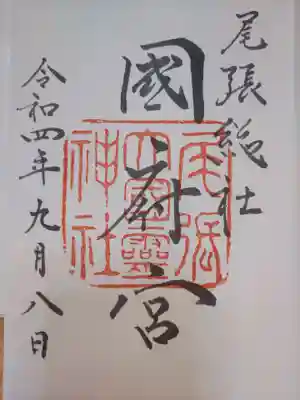 尾張総社
國府宮
尾張
大國霊
神社
令和四年九月八日